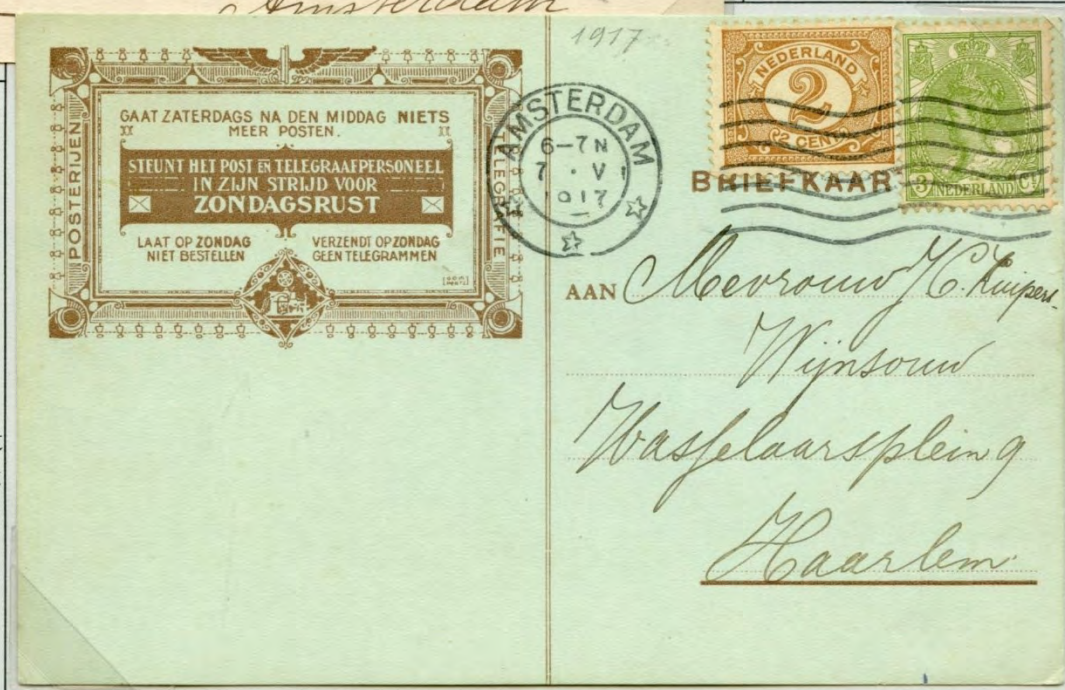 Amsterdam
1917
POSTERIJEN
GAAT ZATERDAGS NA DEN MIDDAG NIETS
MEER POSTEN.
STEUNT HET POST EN TELEGRAAFPERSONEEL
IN ZIJN STRIJD VOOR
ZONDAGSRUST
LAAT OP ZONDAG
NIET BESTELLEN
VERZENDT OP ZONDAG
GEEN TELEGRAMMEN
TELEGRAFIE
AMSTERDAM
6-7N
7 · V
1917
NEDERLAND
2
2 CENT
3 NEDERLAND Ct
BRIEFKAAR
AAN Mevrouw H. Kuipers
Wijnsouw
Wasfelaarsplein 9
Haarlem